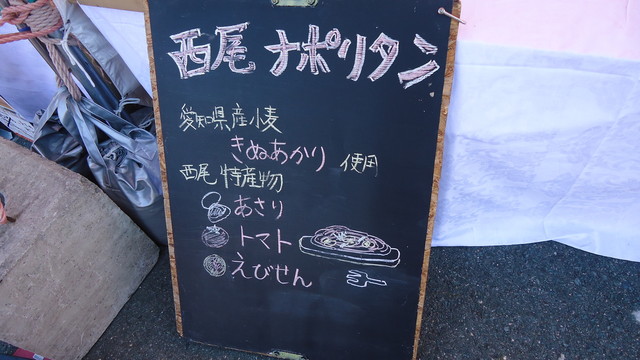 西尾ナポリタン
愛知県産小麦
きぬあかり 使用
西尾特産物
あさり
トマト
えびせん